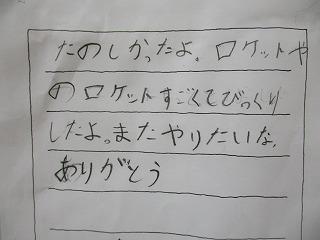 たのしかったよ。ロケットや
のロケットすごくてびっくり
したよ。またやりたいな。
ありがとう